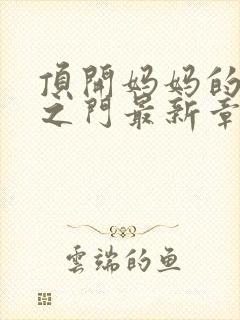 頂開妈妈的
之門最新章
雲端的鱼